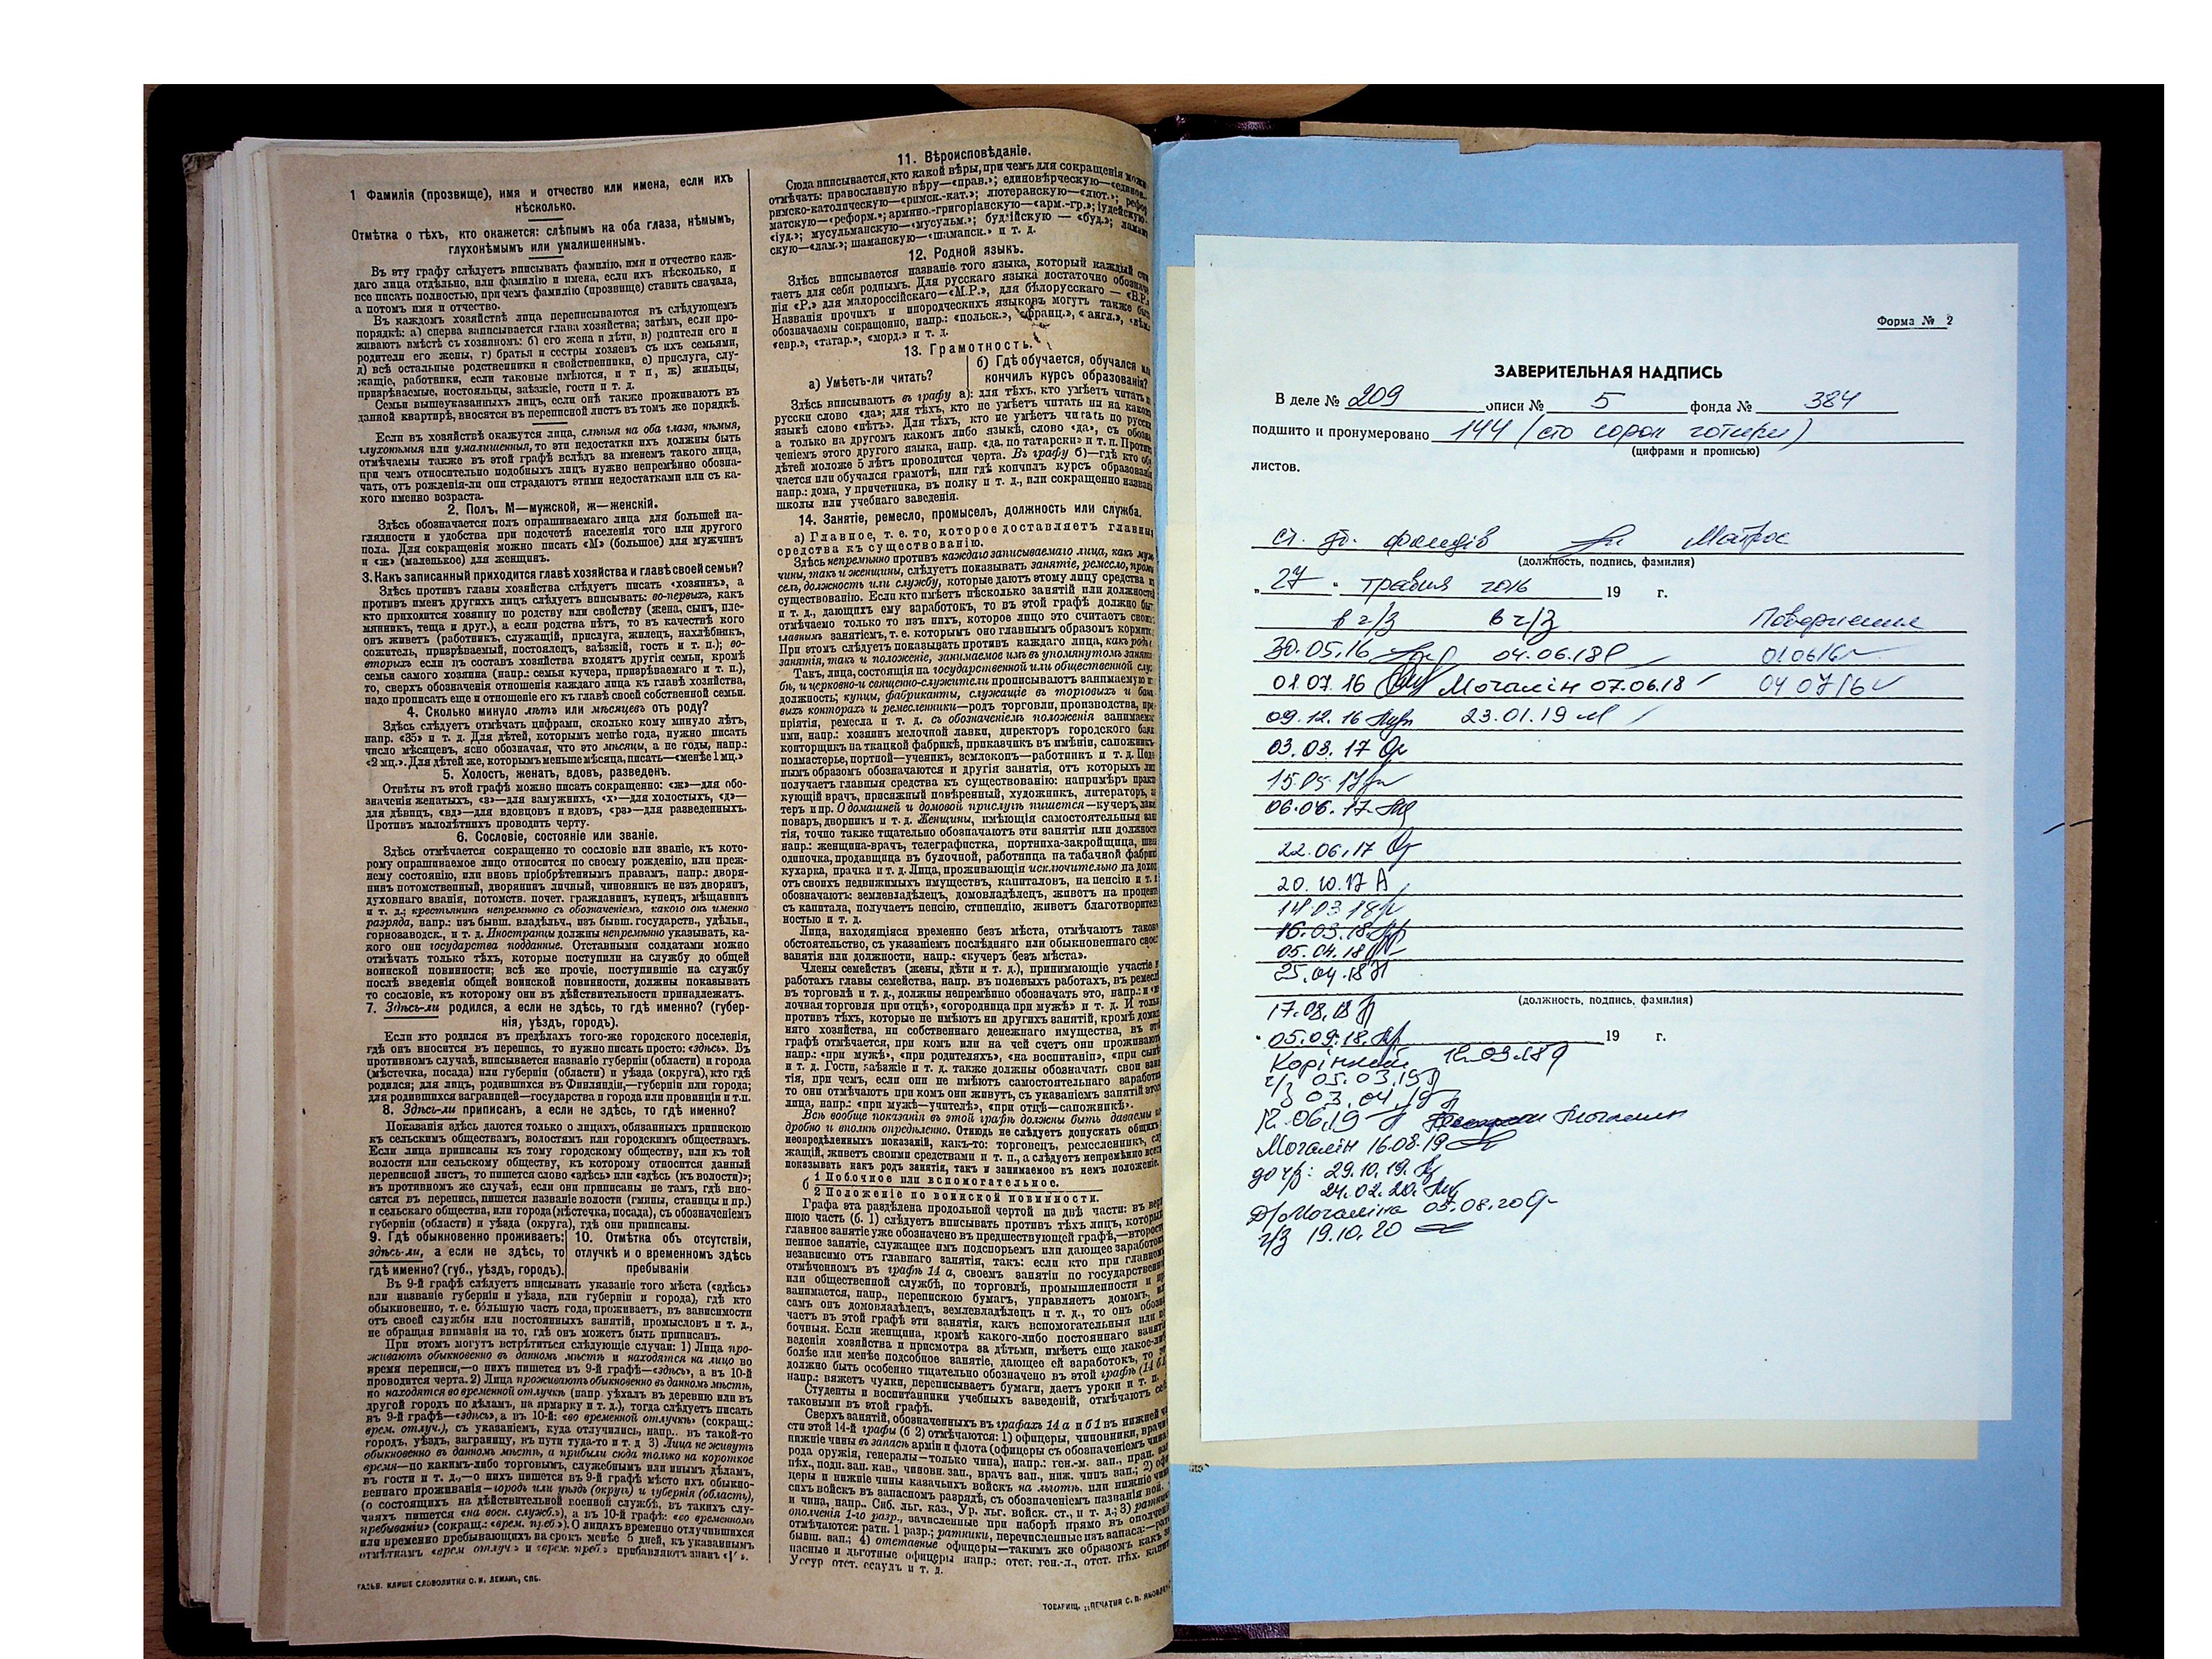 1 Фамилія (прозвище), имя и отчество или имена, если ихъ
нѣсколько.
Отмѣтка о тѣхъ, кто окажется: слѣпымъ на оба глаза, нѣмымъ,
глухонѣмымъ или умалишеннымъ.
Въ эту графу слѣдуетъ вписывать фамилію, имя и отчество каж-
даго лица отдѣльно, или фамилію и имена, если ихъ нѣсколько, и
все писать полностью, при чемъ фамилію (прозвище) ставить сначала,
а потомъ имя и отчество.
Въ каждомъ хозяйствѣ лица переписываются въ слѣдующемъ
порядкѣ: а) сперва записывается глава хозяйства; затѣмъ, если про-
живаютъ вмѣстѣ съ хозяиномъ: б) его жена и дѣти, в) родители его и
родители его жены, г) братья и сестры хозяевъ съ ихъ семьями,
д) всѣ остальные родственники и свойственники, е) прислуга, слу-
жащіе, работники, если таковые имѣются, и т п, ж) жильцы,
призрѣваемые, постояльцы, заѣзжіе, гости и т. д.
Семьи вышеуказанныхъ лицъ, если онѣ также проживаютъ въ
данной квартирѣ, вносятся въ переписной листъ въ томъ же порядкѣ.
Если въ хозяйствѣ окажутся лица, слѣпыя на оба глаза, нѣмыя,
глухонѣмыя или умалишенныя, то эти недостатки ихъ должны быть
отмѣчаемы также въ этой графѣ вслѣдъ за именемъ такого лица,
при чемъ относительно подобныхъ лицъ нужно непремѣнно обозна-
чать, отъ рожденія-ли они страдаютъ этими недостатками или съ ка-
кого именно возраста.
2. Полъ, М—мужской, ж—женскій.
Здѣсь обозначается полъ опрашиваемаго лица для большей на-
глядности и удобства при подсчетѣ населенія того или другого
пола. Для сокращенія можно писать «М» (большое) для мужчинъ
и «ж» (маленькое) для женщинъ.
3. Какъ записанный приходится главѣ хозяйства и главѣ своей семьи?
Здѣсь противъ главы хозяйства слѣдуетъ писать «хозяинъ», а
противъ именъ другихъ лицъ слѣдуетъ вписывать: во-первыхъ, какъ
кто приходится хозяину по родству или свойству (жена, сынъ, пле-
мянникъ, теща и друг.), а если родства нѣтъ, то въ качествѣ кого
онъ живетъ (работникъ, служащій, прислуга, жилецъ, нахлѣбникъ,
сожитель, призрѣваемый, постоялецъ, заѣзжій, гость и т. п.); во-
вторыхъ если въ составъ хозяйства входятъ другія семьи, кромѣ
семьи самого хозяина (напр.: семьи кучера, призрѣваемаго и т. п.),
то, сверхъ обозначенія отношенія каждаго лица къ главѣ хозяйства,
надо прописать еще и отношеніе его къ главѣ своей собственной семьи.
4. Сколько минуло лѣтъ или мѣсяцевъ отъ роду?
Здѣсь слѣдуетъ отмѣчать цифрами, сколько кому минуло лѣтъ,
напр. «35» и т. д. Для дѣтей, которымъ менѣе года, нужно писать
число мѣсяцевъ, ясно обозначая, что это мѣсяцы, а не годы, напр.:
«2 мц.». Для дѣтей же, которымъ меньше мѣсяца, писать—«менѣе 1 мц.»
5. Холостъ, женатъ, вдовъ, разведенъ.
Отвѣты въ этой графѣ можно писать сокращенно: «ж»—для обо-
значенія женатыхъ, «з»—для замужнихъ, «х»—для холостыхъ, «д»—
для дѣвицъ, «вд»—для вдовцовъ и вдовъ, «рз»—для разведенныхъ.
Противъ малолѣтнихъ проводить черту.
6. Сословіе, состояніе или званіе.
Здѣсь отмѣчается сокращенно то сословіе или званіе, къ кото-
рому опрашиваемое лицо относится по своему рожденію, или преж-
нему состоянію, или вновь пріобрѣтеннымъ правамъ, напр.: дворя-
нинъ потомственный, дворянинъ личный, чиновникъ не изъ дворянъ,
духовнаго званія, потомств. почет. гражданинъ, купецъ, мѣщанинъ
и т. д.; крестьянинъ непремѣнно съ обозначеніемъ, какого онъ именно
разряда, напр.: изъ бывш. владѣльч., изъ бывш. государств., удѣльн.,
горнозаводск., и т. д. Иностранцы должны непремѣнно указывать, ка-
кого они государства подданные. Отставными солдатами можно
отмѣчать только тѣхъ, которые поступили на службу до общей
воинской повинности; всѣ же прочіе, поступившіе на службу
послѣ введенія общей воинской повинности, должны показывать
то сословіе, къ которому они въ дѣйствительности принадлежатъ.
7. Здѣсь-ли родился, а если не здѣсь, то гдѣ именно? (губер-
нія, уѣздъ, городъ).
Если кто родился въ предѣлахъ того-же городского поселенія,
гдѣ онъ вносится въ перепись, то нужно писать просто: «здѣсь». Въ
противномъ случаѣ, вписывается названіе губерніи (области) и города
(мѣстечка, посада) или губерніи (области) и уѣзда (округа), кто гдѣ
родился; для лицъ, родившихся въ Финляндіи,—губерніи или города;
для родившихся заграницей—государства и города или провинціи и т.п.
8. Здѣсь-ли приписанъ, а если не здѣсь, то гдѣ именно?
Показанія здѣсь даются только о лицахъ, обязанныхъ припискою
къ сельскимъ обществамъ, волостямъ или городскимъ обществамъ.
Если лица приписаны къ тому городскому обществу, или къ той
волости или сельскому обществу, къ которому относится данный
переписной листъ, то пишется слово «здѣсь» или «здѣсь (къ волости)»;
въ противномъ же случаѣ, если они приписаны не тамъ, гдѣ вно-
сятся въ перепись, пишется названіе волости (гмины, станицы и пр.)
и сельскаго общества, или города (мѣстечка, посада), съ обозначеніемъ
губерніи (области) и уѣзда (округа), гдѣ они приписаны.
9. Гдѣ обыкновенно проживаетъ:
здѣсь-ли, а если не здѣсь, то
гдѣ именно? (губ., уѣздъ, городъ).
10. Отмѣтка объ отсутствіи,
отлучкѣ и о временномъ здѣсь
пребываніи
Въ 9-й графѣ слѣдуетъ вписывать указаніе того мѣста («здѣсь»
или названіе губерніи и уѣзда, или губерніи и города), гдѣ кто
обыкновенно, т. е. бо́льшую часть года, проживаетъ, въ зависимости
отъ своей службы или постоянныхъ занятій, промысловъ и т. д.,
не обращая вниманія на то, гдѣ онъ можетъ быть приписанъ.
При этомъ могутъ встрѣтиться слѣдующіе случаи: 1) Лица про-
живаютъ обыкновенно въ данномъ мѣстѣ и находятся на лицо во
время переписи,—о нихъ пишется въ 9-й графѣ—«здѣсь», а въ 10-й
проводится черта. 2) Лица проживаютъ обыкновенно въ данномъ мѣстѣ,
но находятся во временной отлучкѣ (напр. уѣхалъ въ деревню или въ
другой городъ по дѣламъ, на ярмарку и т. д.), тогда слѣдуетъ писать
въ 9-й графѣ—«здѣсь», а въ 10-й: «во временной отлучкѣ» (сокращ.:
врем. отлуч.), съ указаніемъ, куда отлучились, напр.. въ такой-то
городъ, уѣздъ, заграницу, въ пути туда-то и т. д 3) Лица не живутъ
обыкновенно въ данномъ мѣстѣ, а прибыли сюда только на короткое
время—по какимъ-либо торговымъ, служебнымъ или инымъ дѣламъ,
въ гости и т. д.,—о нихъ пишется въ 9-й графѣ мѣсто ихъ обыкно-
веннаго проживанія—городъ или уѣздъ (округъ) и губернія (область),
(о состоящихъ на дѣйствительной военной службѣ, въ такихъ слу-
чаяхъ пишется «на воен. службѣ»), а въ 10-й графѣ: «во временномъ
пребываніи» (сокращ.: «врем. преб.»). О лицахъ временно отлучившихся
или временно пребывающихъ на срокъ менѣе 5 дней, къ указаннымъ
отмѣткамъ «врем отлуч.» и «врем. преб.» прибавляютъ знакъ
СЛОВОЛИТНИ О. И. ЛЕМАНЪ, СПБ.
11. Вѣроисповѣданіе.
Сюда вписывается, кто какой вѣры, при чемъ для сокращенія
отмѣчать: православную вѣру—«прав.»; единовѣрческую—
римско-католическую—«римск.-кат.»; лютеранскую—«лют.»;
матскую—«реформ.»; армяно.-григоріанскую—«арм.-гр.»; іудейскую—
«іуд.»; мусульманскую—«мусульм.»; буддійскую — «буд.»;
скую—«лам.»; шаманскую—«шаманск.» и т. д.
12. Родной языкъ.
Здѣсь вписывается названіе того языка, который каждый
таетъ для себя роднымъ. Для русскаго языка достаточно
нія «Р.» для малороссійскаго—«М.Р.», для бѣлорусскаго —
Названія прочихъ и инородческихъ языковъ могутъ также
обозначаемы сокращенно, напр.: «польск.», «франц.», « англ.»,
«евр.», «татар.», «морд.» и т. д.
13. Грамотность.
а) Умѣетъ-ли читать?
б) Гдѣ обучается, обучался
кончилъ курсъ образованія?
Здѣсь вписываютъ въ графу а): для тѣхъ, кто умѣетъ читать
русски слово «да»; для тѣхъ, кто не умѣетъ читать ни на
языкѣ слово «нѣтъ». Для тѣхъ, кто не умѣетъ читать по русски
а только на другомъ какомъ либо языкѣ, слово «да», съ
ченіемъ этого другого языка, напр. «да, по татарски» и т. п.
дѣтей моложе 5 лѣтъ проводится черта. Въ графу б)—гдѣ кто
чается или обучался грамотѣ, или гдѣ кончилъ курсъ
напр.: дома, у причетника, въ полку и т. д., или сокращенно
школы или учебнаго заведенія.
14. Занятіе, ремесло, промыселъ, должность или служба.
а) Главное, т. е. то, которое доставляетъ
средства къ существованію.
Здѣсь непремѣнно противъ каждаго записываемаго лица, какъ
чины, такъ и женщины, слѣдуетъ показывать занятіе, ремесло,
селъ, должность или службу, которые даютъ этому лицу средства
существованію. Если кто имѣетъ нѣсколько занятій или
и т. д., дающихъ ему заработокъ, то въ этой графѣ должно
отмѣчаемо только то изъ нихъ, которое лицо это считаетъ
главнымъ занятіемъ, т. е. которымъ оно главнымъ образомъ
При этомъ слѣдуетъ показывать противъ каждаго лица, какъ
занятія, такъ и положеніе, занимаемое имъ въ упомянутомъ
Такъ, лица, состоящія на государственной или общественной
бѣ, и церковно-и священно-служители прописываютъ занимаемую
должность; купцы, фабриканты, служащіе въ торговыхъ и
выхъ конторахъ и ремесленники—родъ торговли, производства,
пріятія, ремесла и т. д. съ обозначеніемъ положенія
ими, напр.: хозяинъ мелочной лавки, директоръ городского
конторщикъ на ткацкой фабрикѣ, приказчикъ въ имѣніи,
подмастерье, портной—ученикъ, землекопъ—работникъ и т. д.
нымъ образомъ обозначаются и другія занятія, отъ которыхъ
получаетъ главныя средства къ существованію: напримѣръ
кующій врачъ, присяжный повѣренный, художникъ, литераторъ,
теръ и пр. О домашней и домовой прислугѣ пишется—кучеръ,
поваръ, дворникъ и т. д. Женщины, имѣющія самостоятельныя
тія, точно также тщательно обозначаютъ эти занятія или
напр.: женщина-врачъ, телеграфистка, портниха-закройщица,
одиночка, продавщица въ булочной, работница на табачной
кухарка, прачка и т. д. Лица, проживающія исключительно на
отъ своихъ недвижимыхъ имуществъ, капиталовъ, на пенсію и т.
обозначаютъ: землевладѣлецъ, домовладѣлецъ, живетъ на
съ капитала, получаетъ пенсію, стипендію, живетъ
ностью и т. д.
Лица, находящіяся временно безъ мѣста, отмѣчаютъ
обстоятельство, съ указаніемъ послѣдняго или обыкновеннаго
занятія или должности, напр.: «кучеръ безъ мѣста».
Члены семействъ (жены, дѣти и т. д.), принимающіе участіе
работахъ главы семейства, напр. въ полевыхъ работахъ, въ
въ торговлѣ и т. д., должны непремѣнно обозначать это, напр.:
лочная торговля при отцѣ», «огородница при мужѣ» и т. д.
противъ тѣхъ, которые не имѣютъ ни другихъ занятій, кромѣ
няго хозяйства, ни собственнаго денежнаго имущества, въ
графѣ отмѣчается, при комъ или на чей счетъ они
напр.: «при мужѣ», «при родителяхъ», «на воспитаніи», «при
и т. д. Гости, заѣзжіе и т. д. также должны обозначать свои
тія, при чемъ, если они не имѣютъ самостоятельнаго
то они отмѣчаютъ при комъ они живутъ, съ указаніемъ занятій
лица, напр.: «при мужѣ—учителѣ», «при отцѣ—сапожникѣ».
Всѣ вообще показанія въ этой графѣ должны быть даваемы
дробно и вполнѣ опредѣленно. Отнюдь не слѣдуетъ допускать
неопредѣленныхъ показаній, какъ-то: торговецъ, ремесленникъ,
жащій, живетъ своими средствами и т. п., а слѣдуетъ непремѣнно
показывать какъ родъ занятія, такъ и занимаемое въ немъ положеніе.
б 1 Побочное или вспомогательное.
2 Положеніе по воинской повинности.
Графа эта раздѣлена продольной чертой на двѣ части: въ
нюю часть (б. 1) слѣдуетъ вписывать противъ тѣхъ лицъ,
главное занятіе уже обозначено въ предшествующей графѣ,—
пенное занятіе, служащее имъ подспорьемъ или дающее
независимо отъ главнаго занятія, такъ: если кто при
отмѣченномъ въ графѣ 14 а, своемъ занятіи по
или общественной службѣ, по торговлѣ, промышленности и
занимается, напр., перепискою бумагъ, управляетъ домомъ,
самъ онъ домовладѣлецъ, землевладѣлецъ и т. д., то онъ
чаетъ въ этой графѣ эти занятія, какъ вспомогательныя или
бочныя. Если женщина, кромѣ какого-либо постояннаго
веденія хозяйства и присмотра за дѣтьми, имѣетъ еще
болѣе или менѣе подсобное занятіе, дающее ей заработокъ, то
должно быть особенно тщательно обозначено въ этой графѣ
напр.: вяжетъ чулки, переписываетъ бумаги, даетъ уроки и т. п.
Студенты и воспитанники учебныхъ заведеній, отмѣчаютъ
таковыми въ этой графѣ.
Сверхъ занятій, обозначенныхъ въ графахъ 14 а и б 1 въ нижней
сти этой 14-й графы (б 2) отмѣчаются: 1) офицеры, чиновники,
нижніе чины въ запасѣ арміи и флота (офицеры съ обозначеніемъ
рода оружія, генералы—только чина), напр.: ген.-м. зап.,
пѣх., подп. зап. кав., чиновн. зап., врачъ зап., ниж. чинъ зап.; 2)
церы и нижніе чины казачьихъ войскъ на льготѣ, или нижніе
сихъ войскъ въ запасномъ разрядѣ, съ обозначеніемъ названія
и чина, напр.. Сиб. льг. каз., Ур. льг. войск. ст., и т. д.; 3)
ополченія 1-го разр., зачисленные при наборѣ прямо въ
отмѣчаются: ратн. 1 разр.; ратники, перечисленные изъ запаса:—
бывш. зап.; 4) отставные офицеры—такимъ же образомъ какъ
пасные и льготные офицеры напр.: отст. ген.-л., отст. пѣх.
Уссур отст. есаулъ и т. д.
ТОВАРИЩ. „ПЕЧАТНЯ С. П.
Форма № 2
ЗАВЕРИТЕЛЬНАЯ НАДПИСЬ
В деле № 209 описи № 5 фонда № 384
подшито и пронумеровано 144 (сто сорок чотири)
(цифрами и прописью)
листов.
ст. зб. фондів Матрос
(должность, подпись, фамилия)
„27" травня 2016 19 г.
в ч/з в ч/з Повернення
30.05.16 04.06.18 01.06.16
01.07.16 Могалін 07.06.18 04.07.16
09.12.16 23.01.19
03.03.17
15.05.17
06.06.17
22.06.17
20.10.17
14.03.18
16.03.18
05.04.18
25.04.18
(должность, подпись, фамилия)
17.08.18
05.09.18 19 г.
12.03.19
ч/з 05.03.19
03.04.19
12.06.19
Могалін 16.08.19
до ч/з: 29.10.19
24.02.20
Могаліна 05.08.20
ч/з 19.10.20